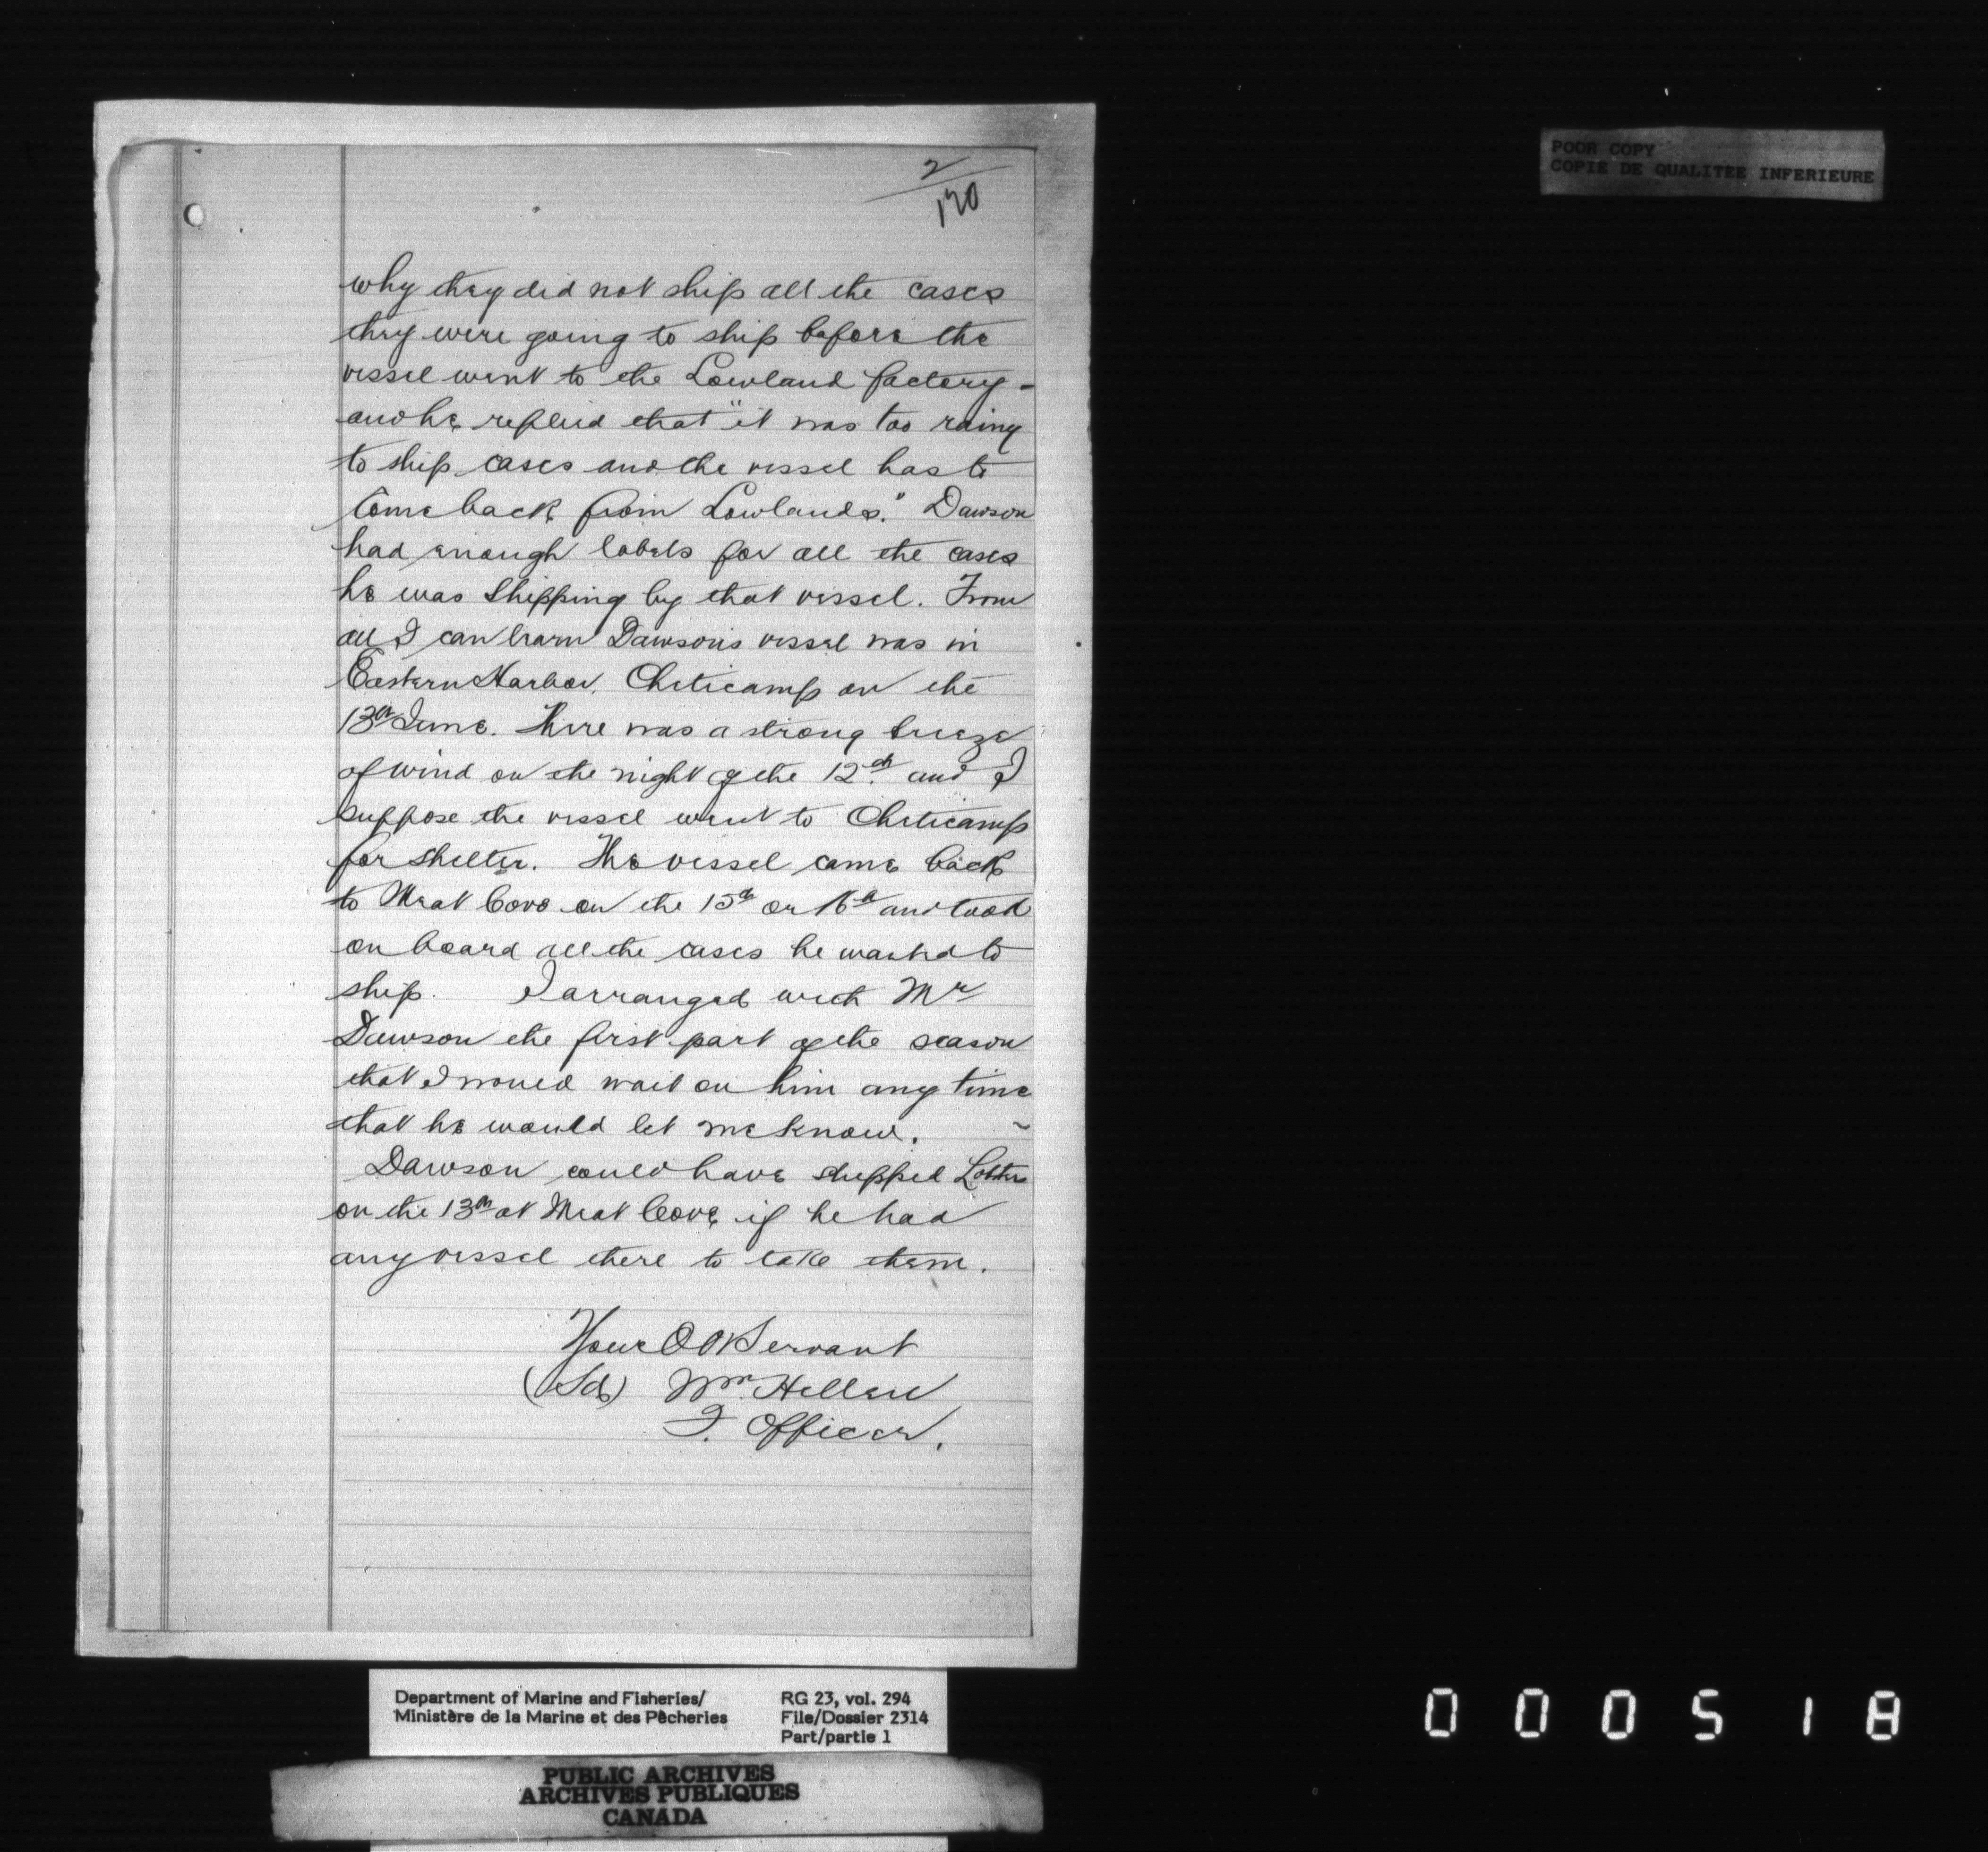 2/170
POOR COPY
COPIE DE QUALITEE INFERIEURE
why they did not ship all the cases
they were going to ship before the
vessel went to the Lowland factory -
and he replied that "it was too rainy
to ship cases and the vessel has to
come back from Lowlands." Dawson
had enough labels for all the cases
he was shipping by that vessel. From
all I can learn Dawson's vessel was in
Eastern Harbor, Cheticamp on the
13th June. There was a strong breeze
of wind on the night of the 12th and I
suppose the vessel went to Cheticamp
for shelter. The vessel came back
to Meat Cove on the 15th or 16th and took
on board all the cases he wanted to
ship. I arranged with Mr
Dawson the first part of the season
that I would wait on him any time
that he would let me know.
Dawson could have shipped
on the 13th at Meat Cove if he had
any vessel there to take them.
Your Servant
(Sd) Wm
F. Officer.
Department of Marine and Fisheries/
Ministère de la Marine et des Pêcheries
RG 23, vol. 294
File/Dossier 2314
Part/partie 1
PUBLIC ARCHIVES
ARCHIVES PUBLIQUES
CANADA
000518